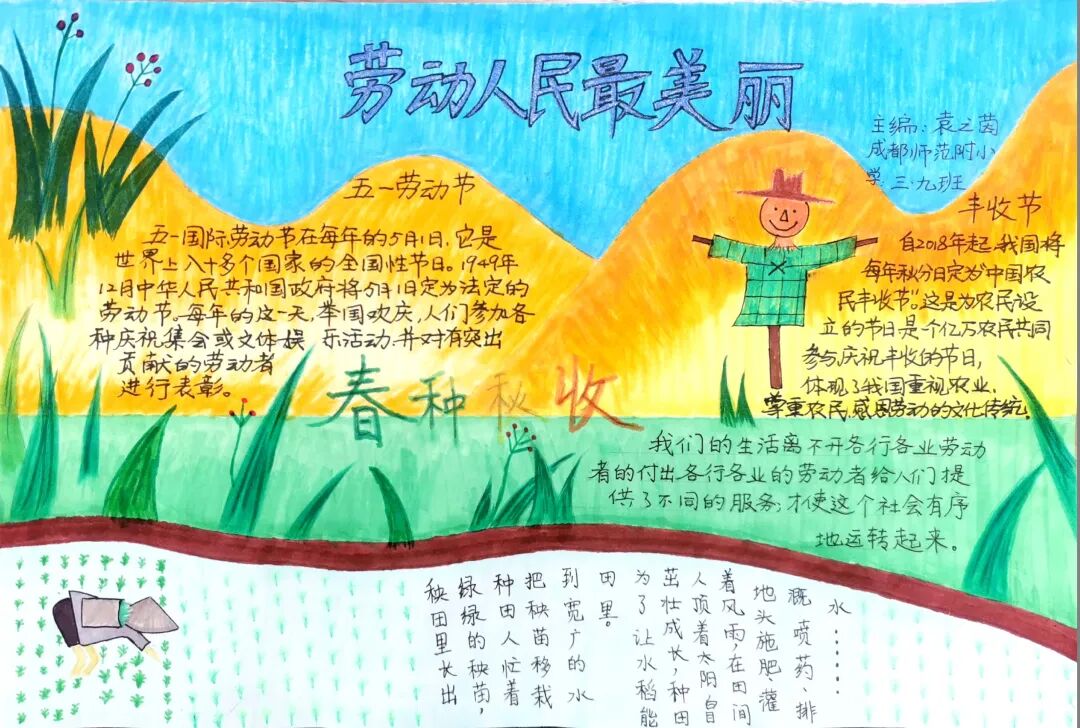 劳动人民最美丽
主编:袁之茵
成都师范附小
学:三·九班
五一劳动节
五一国际劳动节在每年的5月1日,它是
世界上八十多个国家的全国性节日。1949年
12月中华人民共和国政府将5月1日定为法定的
劳动节。每年的这一天,举国欢庆,人们参加各
种庆祝集会或文体娱乐活动,并对有突出
贡献的劳动者
进行表彰。
丰收节
自2018年起,我国将
每年秋分日定为“中国农
民丰收节”。这是为农民设
立的节日是一个亿万农民共同
参与,庆祝丰收的节日,
体现了我国重视农业,
尊重农民,感恩劳动的文化传统。
春种秋收
我们的生活离不开各行各业劳动
者的付出,各行各业的劳动者给人们提
供了不同的服务;才使这个社会有序
地运转起来。
秧田里长出
绿绿的秧苗,
种田人忙着
把秧苗移栽
到宽广的水
田里。
为了让水稻能
茁壮成长,种田
人顶着太阳冒
着风雨,在田间
地头施肥灌
溉喷药、排
水……